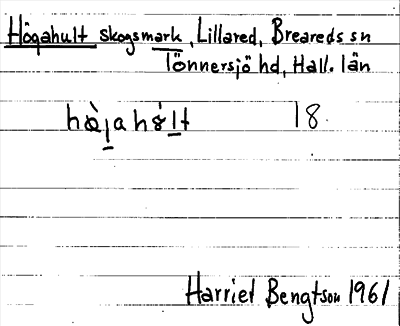 Högahult skogsmark, Lillared, Breareds sn
Tönnersjö hd, Hall. län
hø̀ja hø̀lt 18
Harriet Bengtson 1961